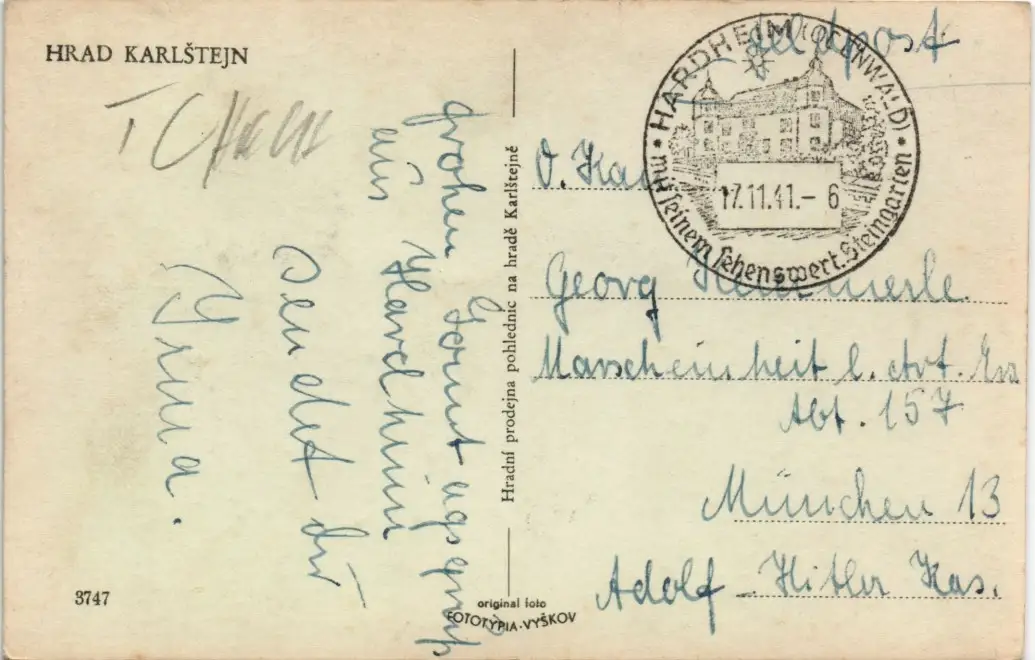 HRAD KARLŠTEJN
Frohen Sonntagsgruß
aus Hardheim
sendet dir
Irma.
3747
Hradní prodejna pohlednic na hradě Karlštejně
original foto
FOTOTYPIA-VYŠKOV
Feldpost
HARDHEIM (ODENWALD)
mit seinem sehenswert. Steingarten
17.11.41.- 6
O. Kan
Georg
Marscheinheit l. Art. Ers
Abt. 157
München 13
Adolf-Hitler Kas.